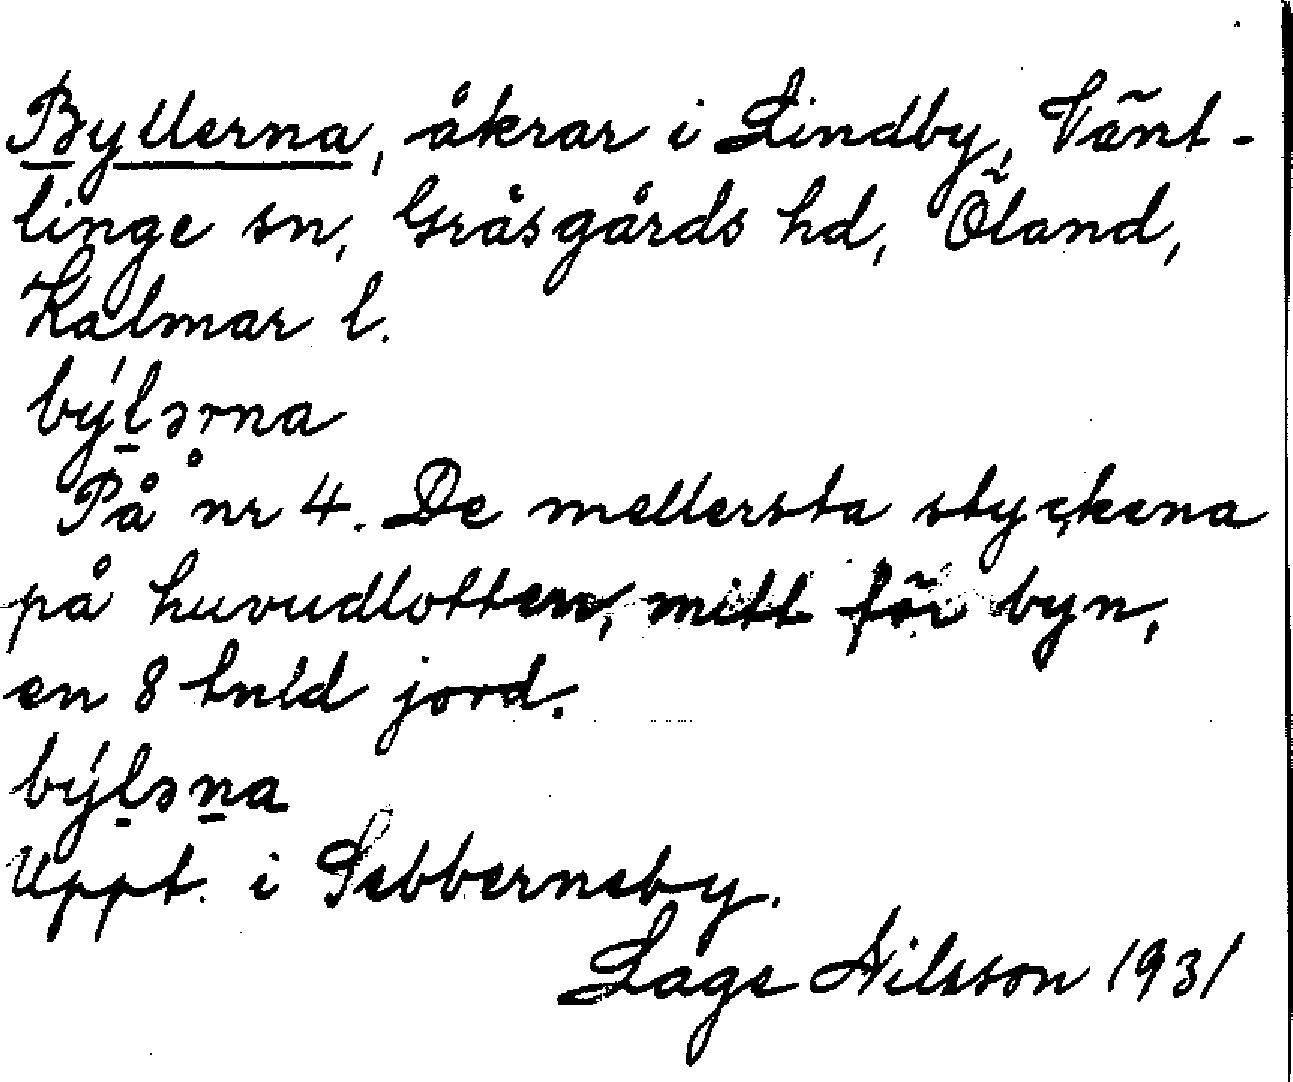 Byllerna, åkrar i Lindby, Vänt-
linge sn, Gräsgårds hd, Öland,
Kalmar l.
býl̠ərna
På nr 4. De mellersta styckena
på huvudlotten, mitt för byn,
en 8 tnld jord.
býl̠ən̠a
Uppt. i Sebberneby.
Lage Nilsson 1931